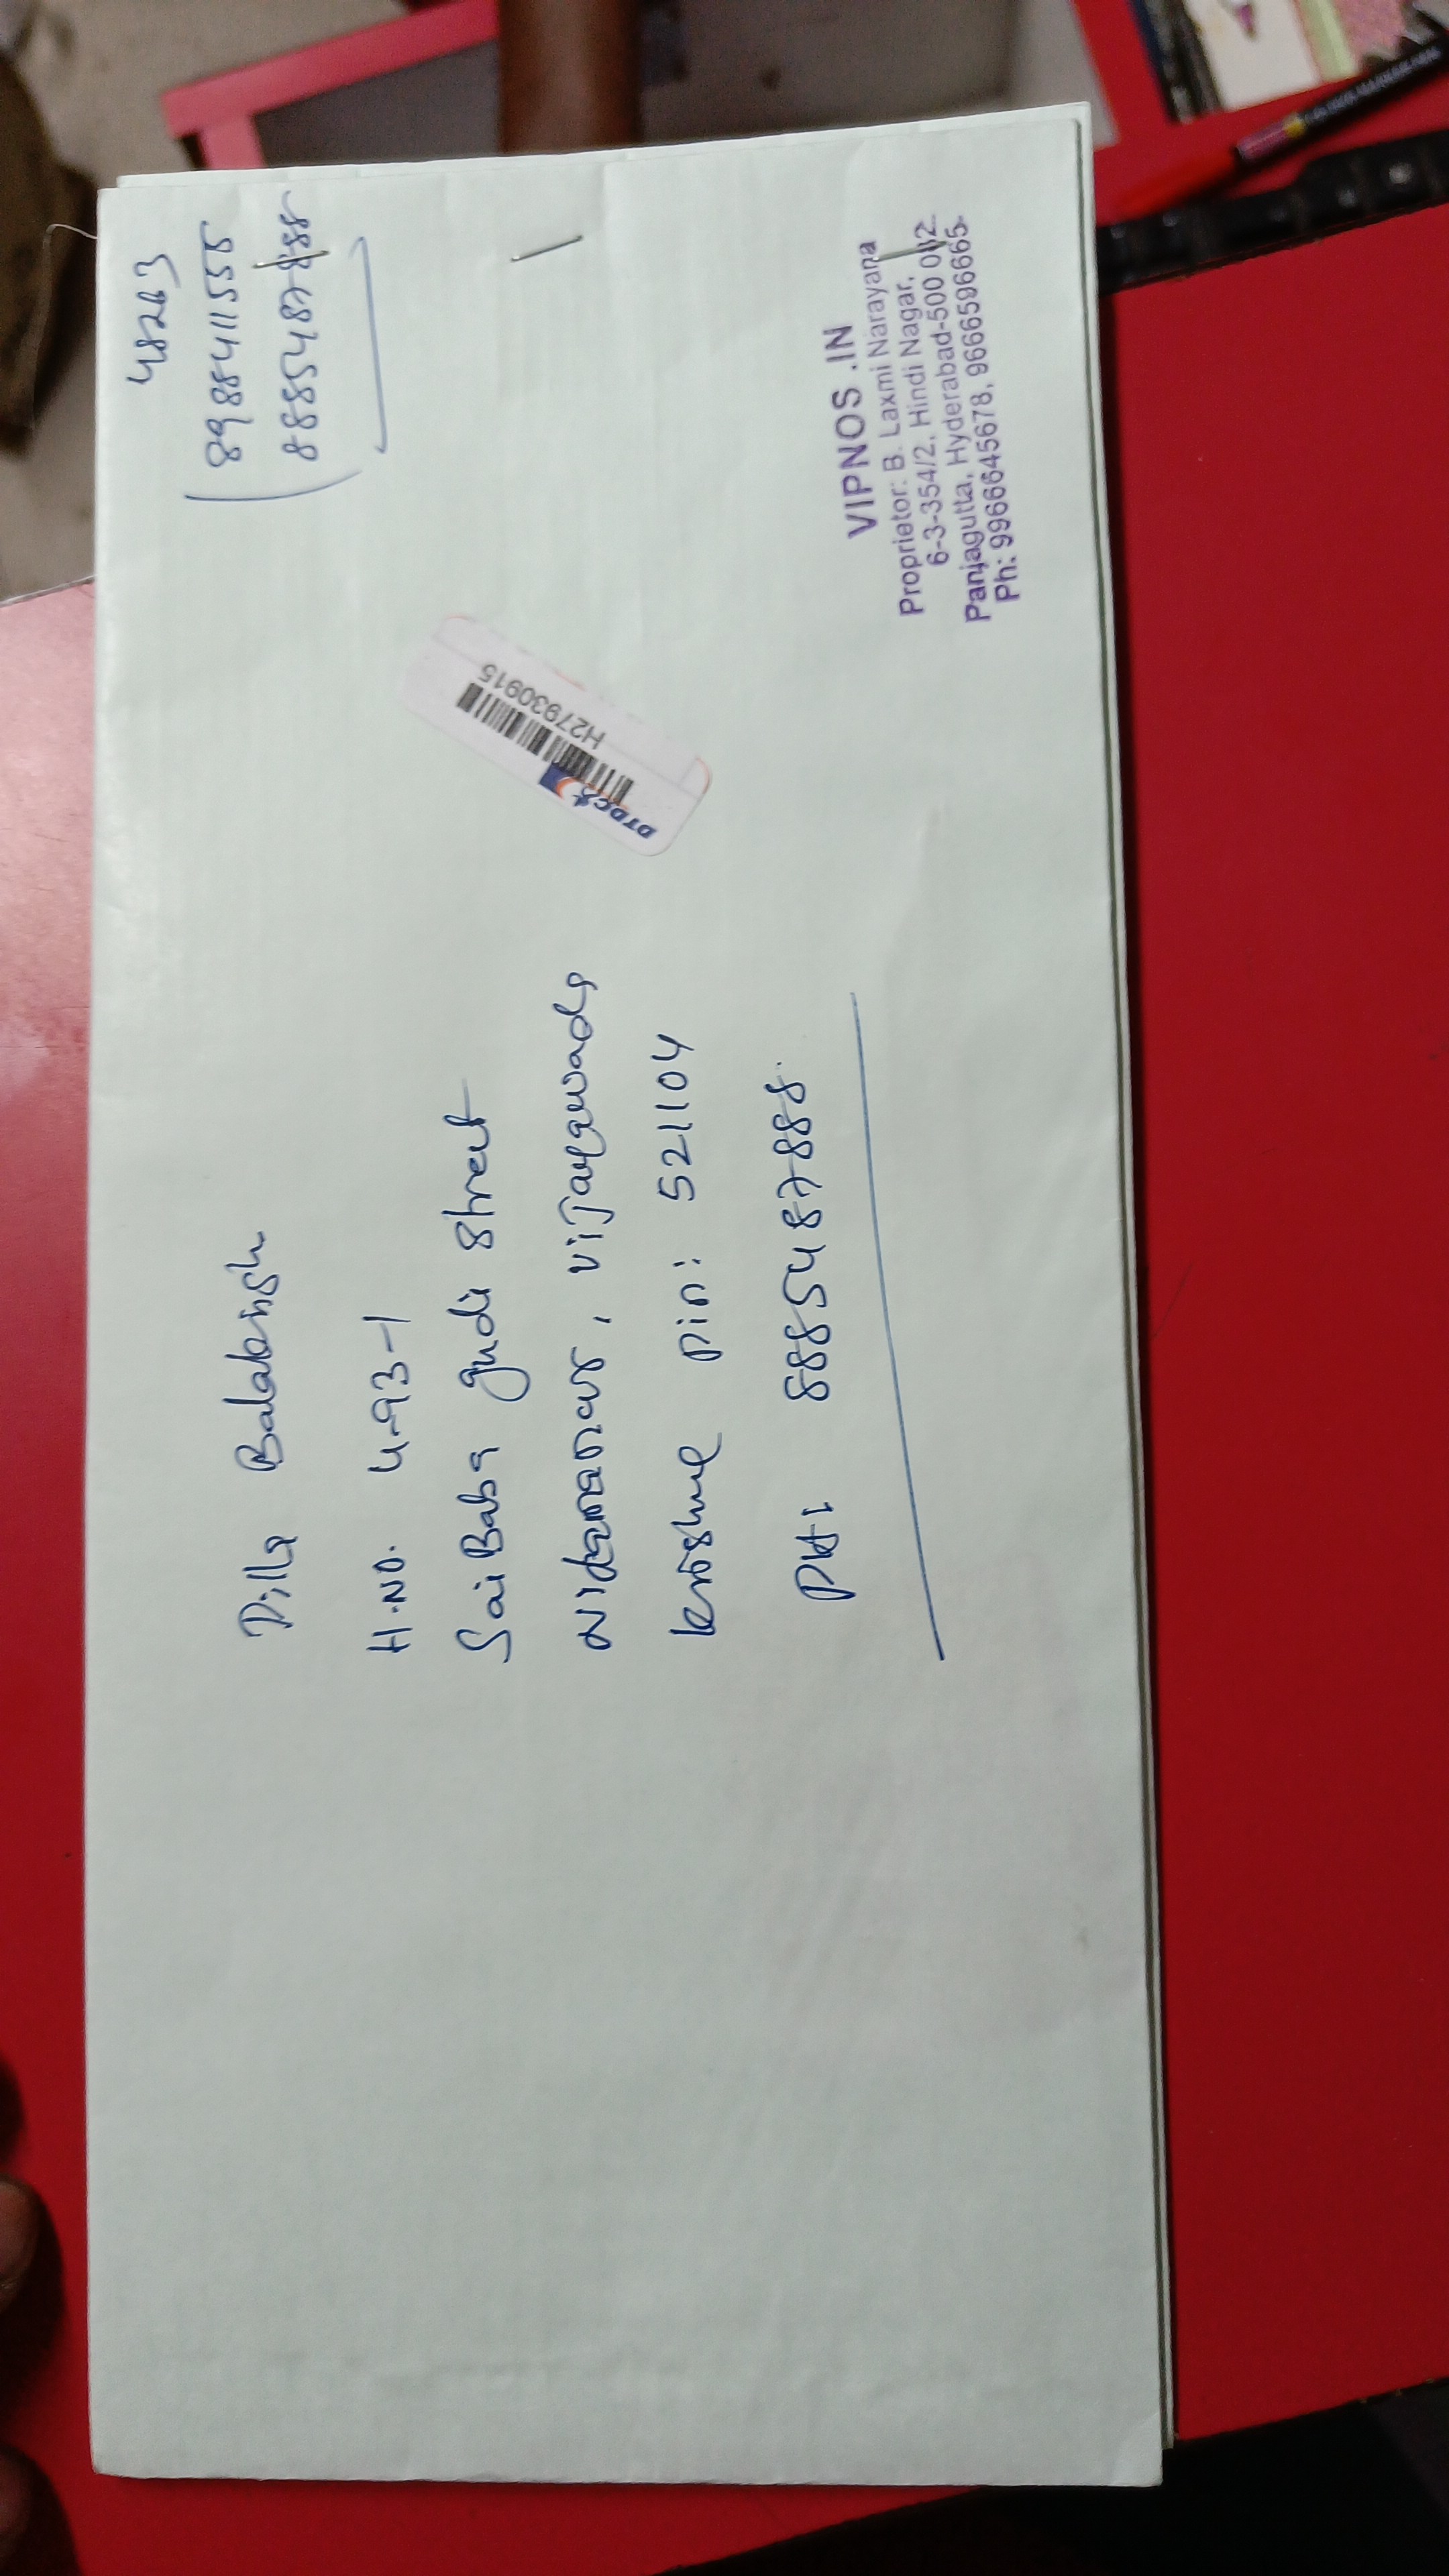 48263
8988411555
8885487888
Pilla Balakrish
H.NO. 4-93-1
Sai Baba gudi Street
Nidamanuru, Vijayawada
Krishna Pin: 521104
PH: 8885487888
DTDC
H27930915
VIPNOS .IN
Proprietor: B. Laxmi Narayana
6-3-354/2, Hindi Nagar,
Panjagutta, Hyderabad-500 0
Ph: 9966645678, 9666596665